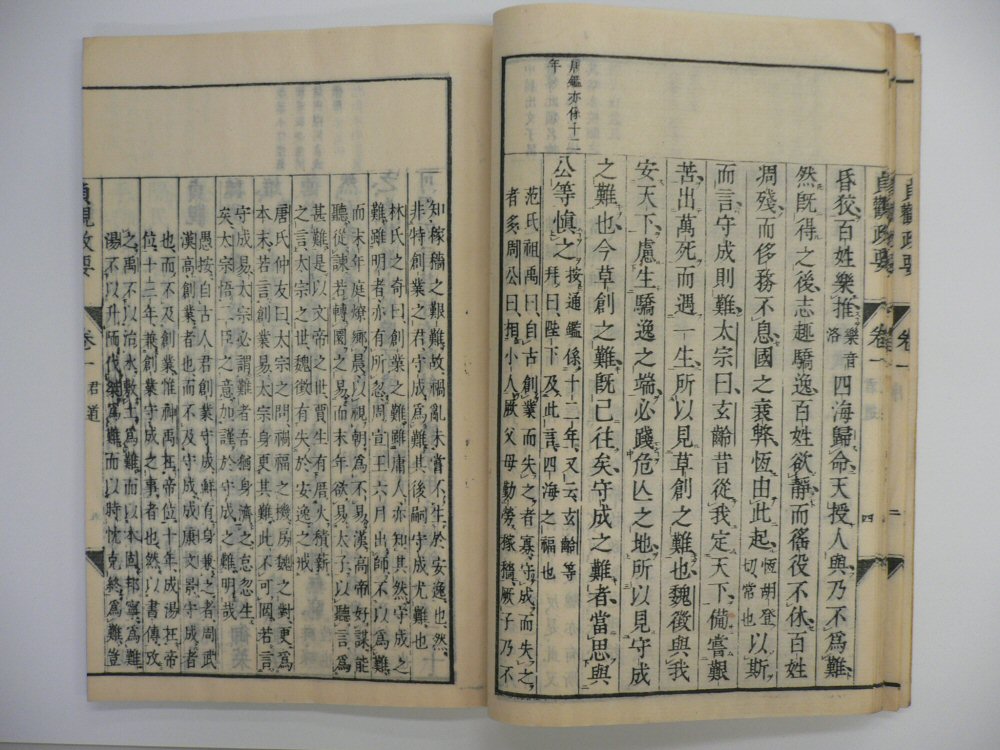 貞觀政要 卷一 二
貞觀政要 卷一 君道 四
唐鑑亦係十二
年
昏狡百姓樂推樂音洛四海歸命天授人與乃不爲難
然既得之後志趣驕逸百姓欲靜而徭役不休百姓
凋殘而侈務不息國之衰弊恆由此起恆胡登切常也以斯
而言守成則難太宗曰玄齡昔從我定天下備嘗艱
苦出萬死而遇一生所以見草創之難也魏徵與我
安天下慮生驕逸之端必踐危亾之地所以見守成
之難也今草創之難既已往矣守成之難者當思與
公等愼之按通鑑係十二年又云玄齡等拜曰陛下及此言四海之福也
范氏祖禹曰自古創業而失之者寡守成而失之
者多周公曰相小人厥父母勤勞稼穡厥子乃不
知稼穡之艱難故禍亂未嘗不生於安逸也然
非特創業之君守成爲難其後嗣守成尤難也
林氏之奇曰創業之難雖庸人亦知其然守成之
難雖明者亦有所忽周宣王六月出師不以爲難
而末年庭燎鄉晨以視朝爲不易漢高帝好謀能
聽從諫若轉圜之易而末年欲易太子以聽言爲
甚難是以文帝之世賈生有厝火積薪
之言太宗之世魏徵有失於安逸之戒
唐氏仲友曰太宗之問禍福之機房魏之對更爲
本末若言創業易太宗身更其難此不可因若言
守成易太宗必謂難者吾猶身濟之怠忽生
矣太宗悟二臣之意加謹於守成之難明哉
愚按自古人君創業守成鮮有身兼之者周武
漢高創業者也而不及守成成康文景守成者
也而不及創業惟神禹在帝位十年成湯在帝
位十三年兼創業守成之事者也然以書傳攷
之禹不以治水敷土爲難而以本固邦寧爲難
湯不以升陑伐桀爲難而以時忱克終爲難豈
貞觀政要 卷一 君道